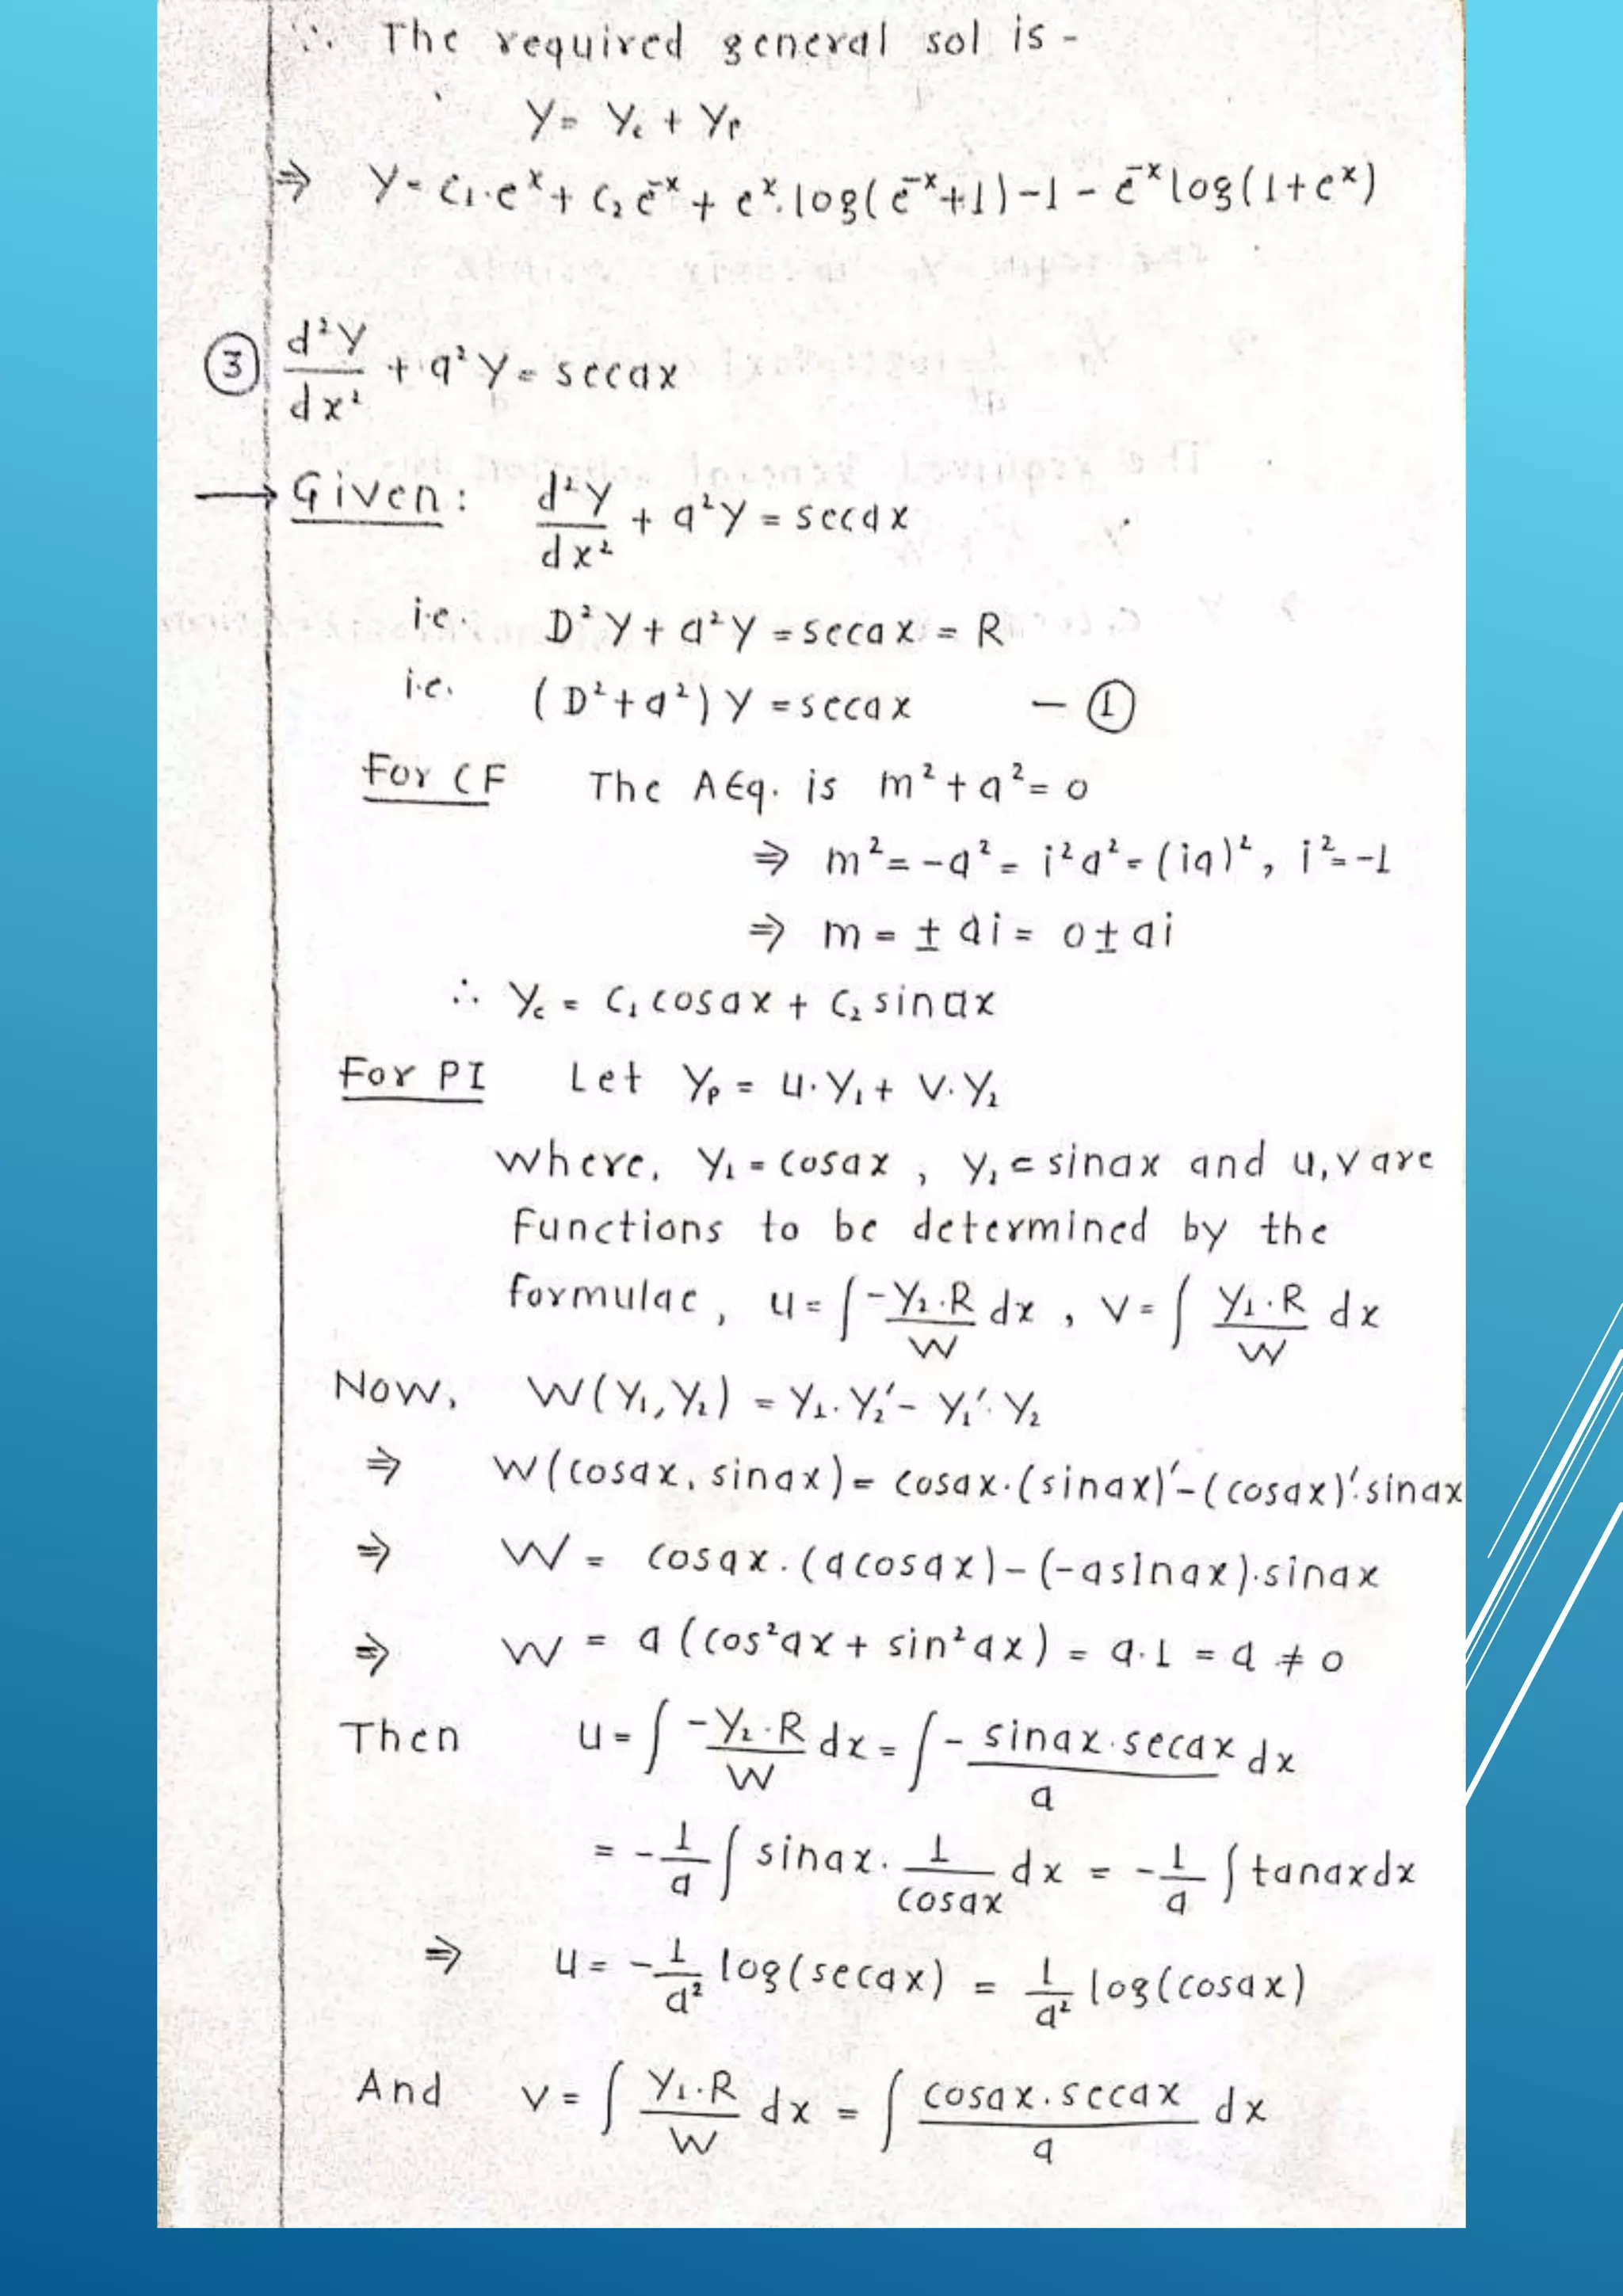 ∴ The required general sol is -
Y = Yc + Yp
⇒ Y = C₁·eˣ + C₂ e⁻ˣ + eˣ·log(e⁻ˣ+1) -1 - e⁻ˣ log(1+eˣ)
③ d²Y/dx² + a²Y = secax
→ Given: d²Y/dx² + a²Y = secax
i.e. D²Y + a²Y = secax = R
i.e. (D²+a²)Y = secax — ①
For CF The AEq. is m²+a² = 0
⇒ m² = -a² = i²a² = (ia)², i² = -1
⇒ m = ± ai = 0 ± ai
∴ Yc = C₁ cosax + C₂ sinax
For PI Let Yp = u·Y₁ + v·Y₂
where, Y₁ = cosax , Y₂ = sinax and u,v are
Functions to be determined by the
formulae, u = ∫ -Y₂·R/W dx , v = ∫ Y₁·R/W dx
Now, W(Y₁,Y₂) = Y₁·Y₂' - Y₁'·Y₂
⇒ W(cosax, sinax) = cosax·(sinax)' - (cosax)'·sinax
⇒ W = cosax·(acosax) - (-asinax)·sinax
⇒ W = a(cos²ax + sin²ax) = a·1 = a ≠ 0
Then u = ∫ -Y₂·R/W dx = ∫ - sinax·secax/a dx
= -1/a ∫ sinax· 1/cosax dx = -1/a ∫ tanaxdx
⇒ u = -1/a² log(secax) = 1/a² log(cosax)
And v = ∫ Y₁·R/W dx = ∫ cosax·secax/a dx